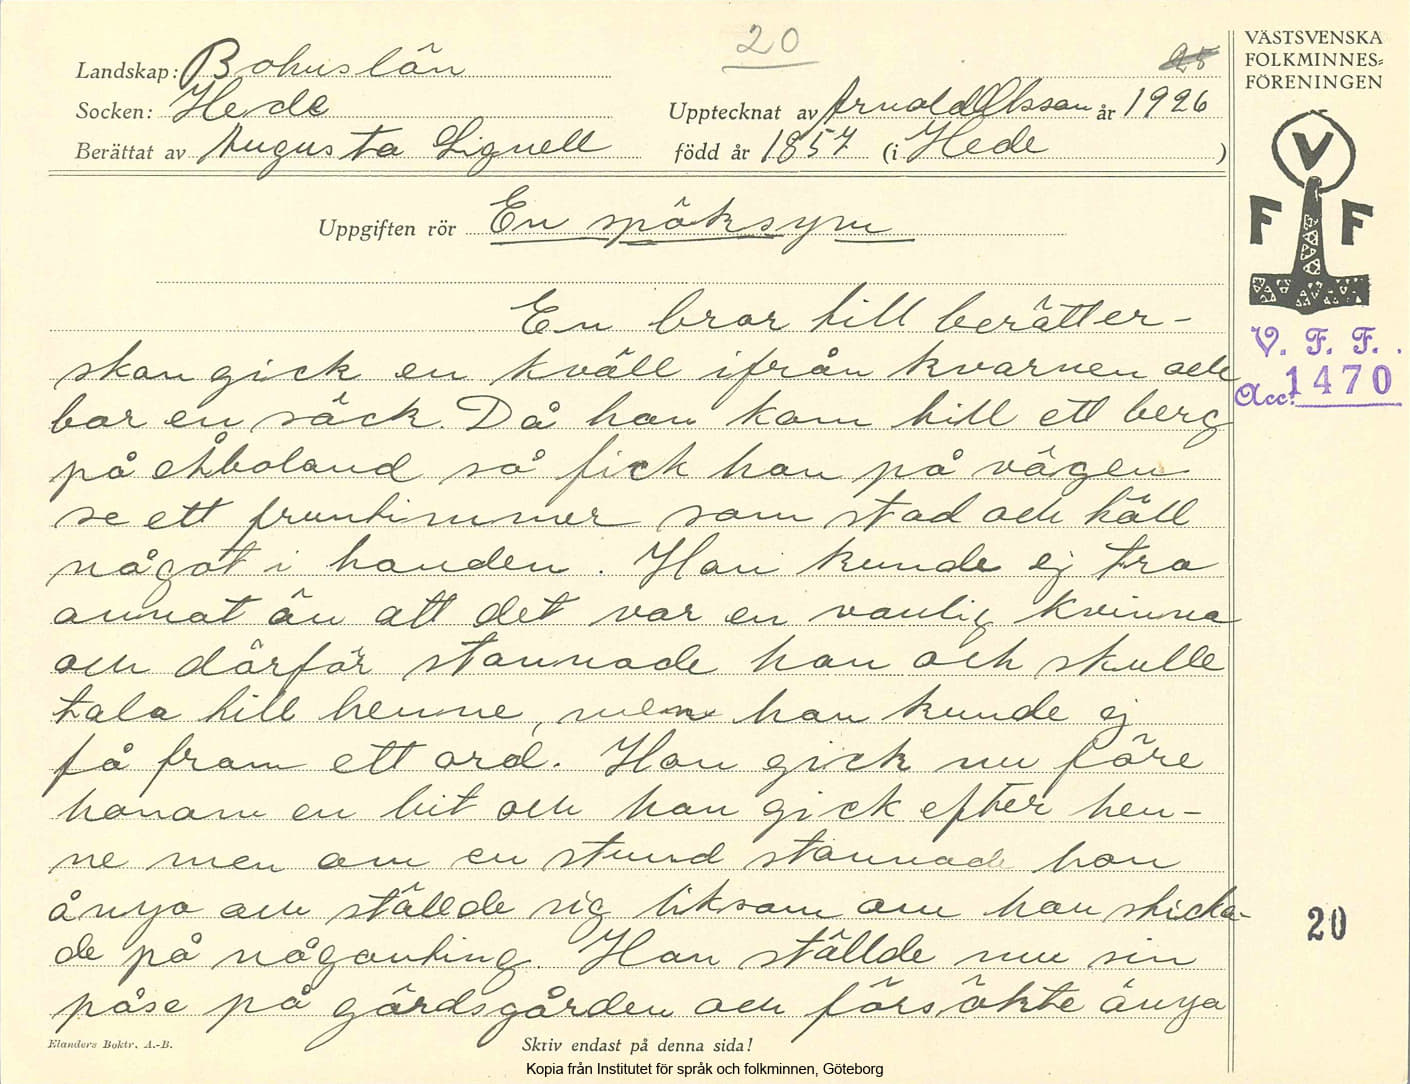 20
25
Landskap: Bohuslän
Socken: Hede
Upptecknat av Arnold Olsson år 1926
Berättat av Augusta Lignell född år 1857 (i Hede)
VÄSTSVENSKA
FOLKMINNES-
FÖRENINGEN
V
F F
V. F. F.
Acc. 1470
Uppgiften rör En spöksyn
En bror till berätter-
skan gick en kväll ifrån kvarnen och
bar en säck. Då han kom till ett berg
på Åboland så fick han på vägen
se ett fruntimmer som stod och höll
något i handen. Han kunde ej tro
annat än att det var en vanlig kvinna
och därför stannade han och skulle
tala till henne, men han kunde ej
få fram ett ord. Hon gick nu före
honom en bit och han gick efter hen-
ne men om en stund stannade hon
ånyo och ställde sig liksom om hon skicka-
de på någonting. Han ställde nu sin
påse på gärdsgården och försökte ånyo
20
Elanders Boktr. A.-B.
Skriv endast på denna sida!
Kopia från Institutet för språk och folkminnen, Göteborg